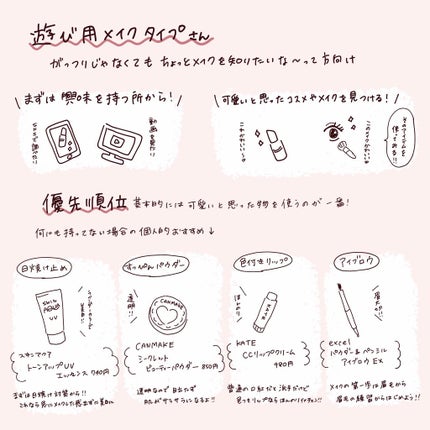 遊び用メイクタイプさん
がっつりじゃなくても ちょっとメイクを知りたいな〜って方向け
\まずは興味を持つ所から！/
\可愛いと思ったコスメやメイクを見つける！/
SNSで調べたり
動画を見たり
これかわいい
このメイクかわいい
そのアイテムを
使ってみる!!
優先順位 基本的には可愛いと思った物を使うのが一番！
何にも持ってない場合の個人的おすすめ↓
日焼け止め
すっぴんパウダー
色付きリップ
アイブロウ
SKIN
AQUA
UV
透明!!
CANMAKE
ほんのり
KATE
眉大事!!
スキンアクア
トーンアップUV
エッセンス 740円
CANMAKE
シークレット
ビューティーパウダー 850円
KATE
CCリップクリーム
480円
excel
パウダー&ペンシル
アイブロウEX
まずは日焼け対策から!!
これなら楽にメイクした感出ずに美白へ
透明なので目立たず
肌がサラサラになるよ!!
普通の口紅だと派手だけど
色つきリップならほんのりでイイかんじ!!
メイクの第一歩は眉毛から
眉毛の練習からはじめよう!!